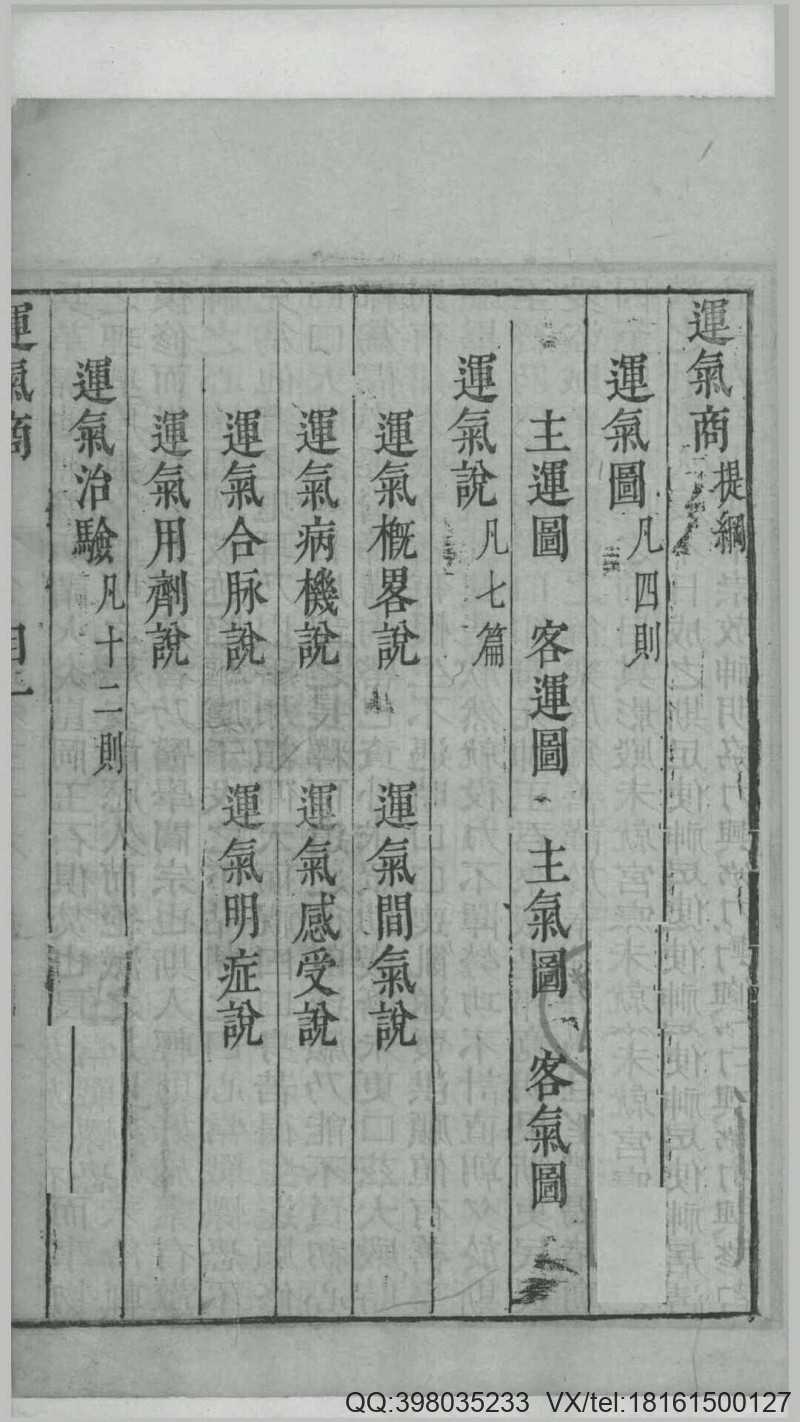 運氣商提綱
運氣圖凡四則
主運圖 客運圖 主氣圖 客氣圖
運氣說凡七篇
運氣概畧說 運氣間氣說
運氣病機說 運氣感受說
運氣合脉說 運氣明症說
運氣用劑說
運氣治驗凡十二則
運氣商
QQ:398035233 VX/tel:18161500127